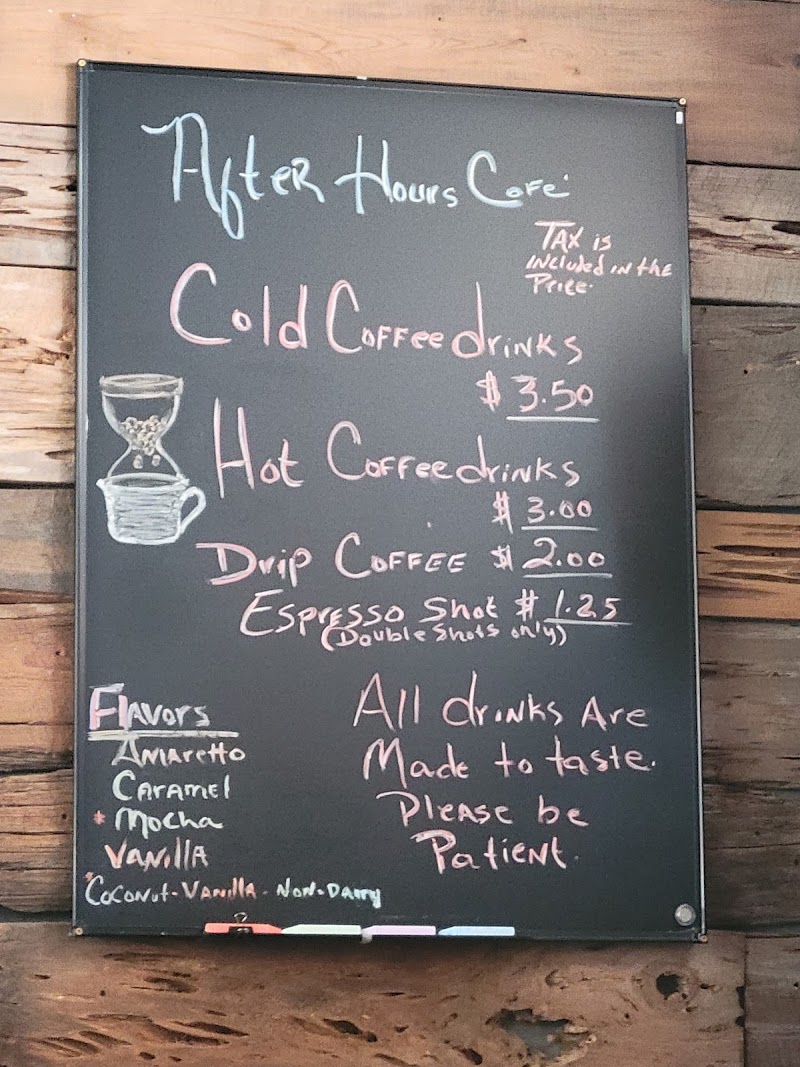 After Hours Café
Tax is
included in the
Price.
Cold Coffee drinks
$ 3.50
Hot Coffee drinks
$ 3.00
Drip Coffee $ 2.00
Espresso Shot $ 1.25
(Double Shots only)
Flavors
Amaretto
Caramel
* Mocha
Vanilla
*Coconut-Vanilla - Non-Dairy
All drinks Are
Made to taste.
Please be
Patient.